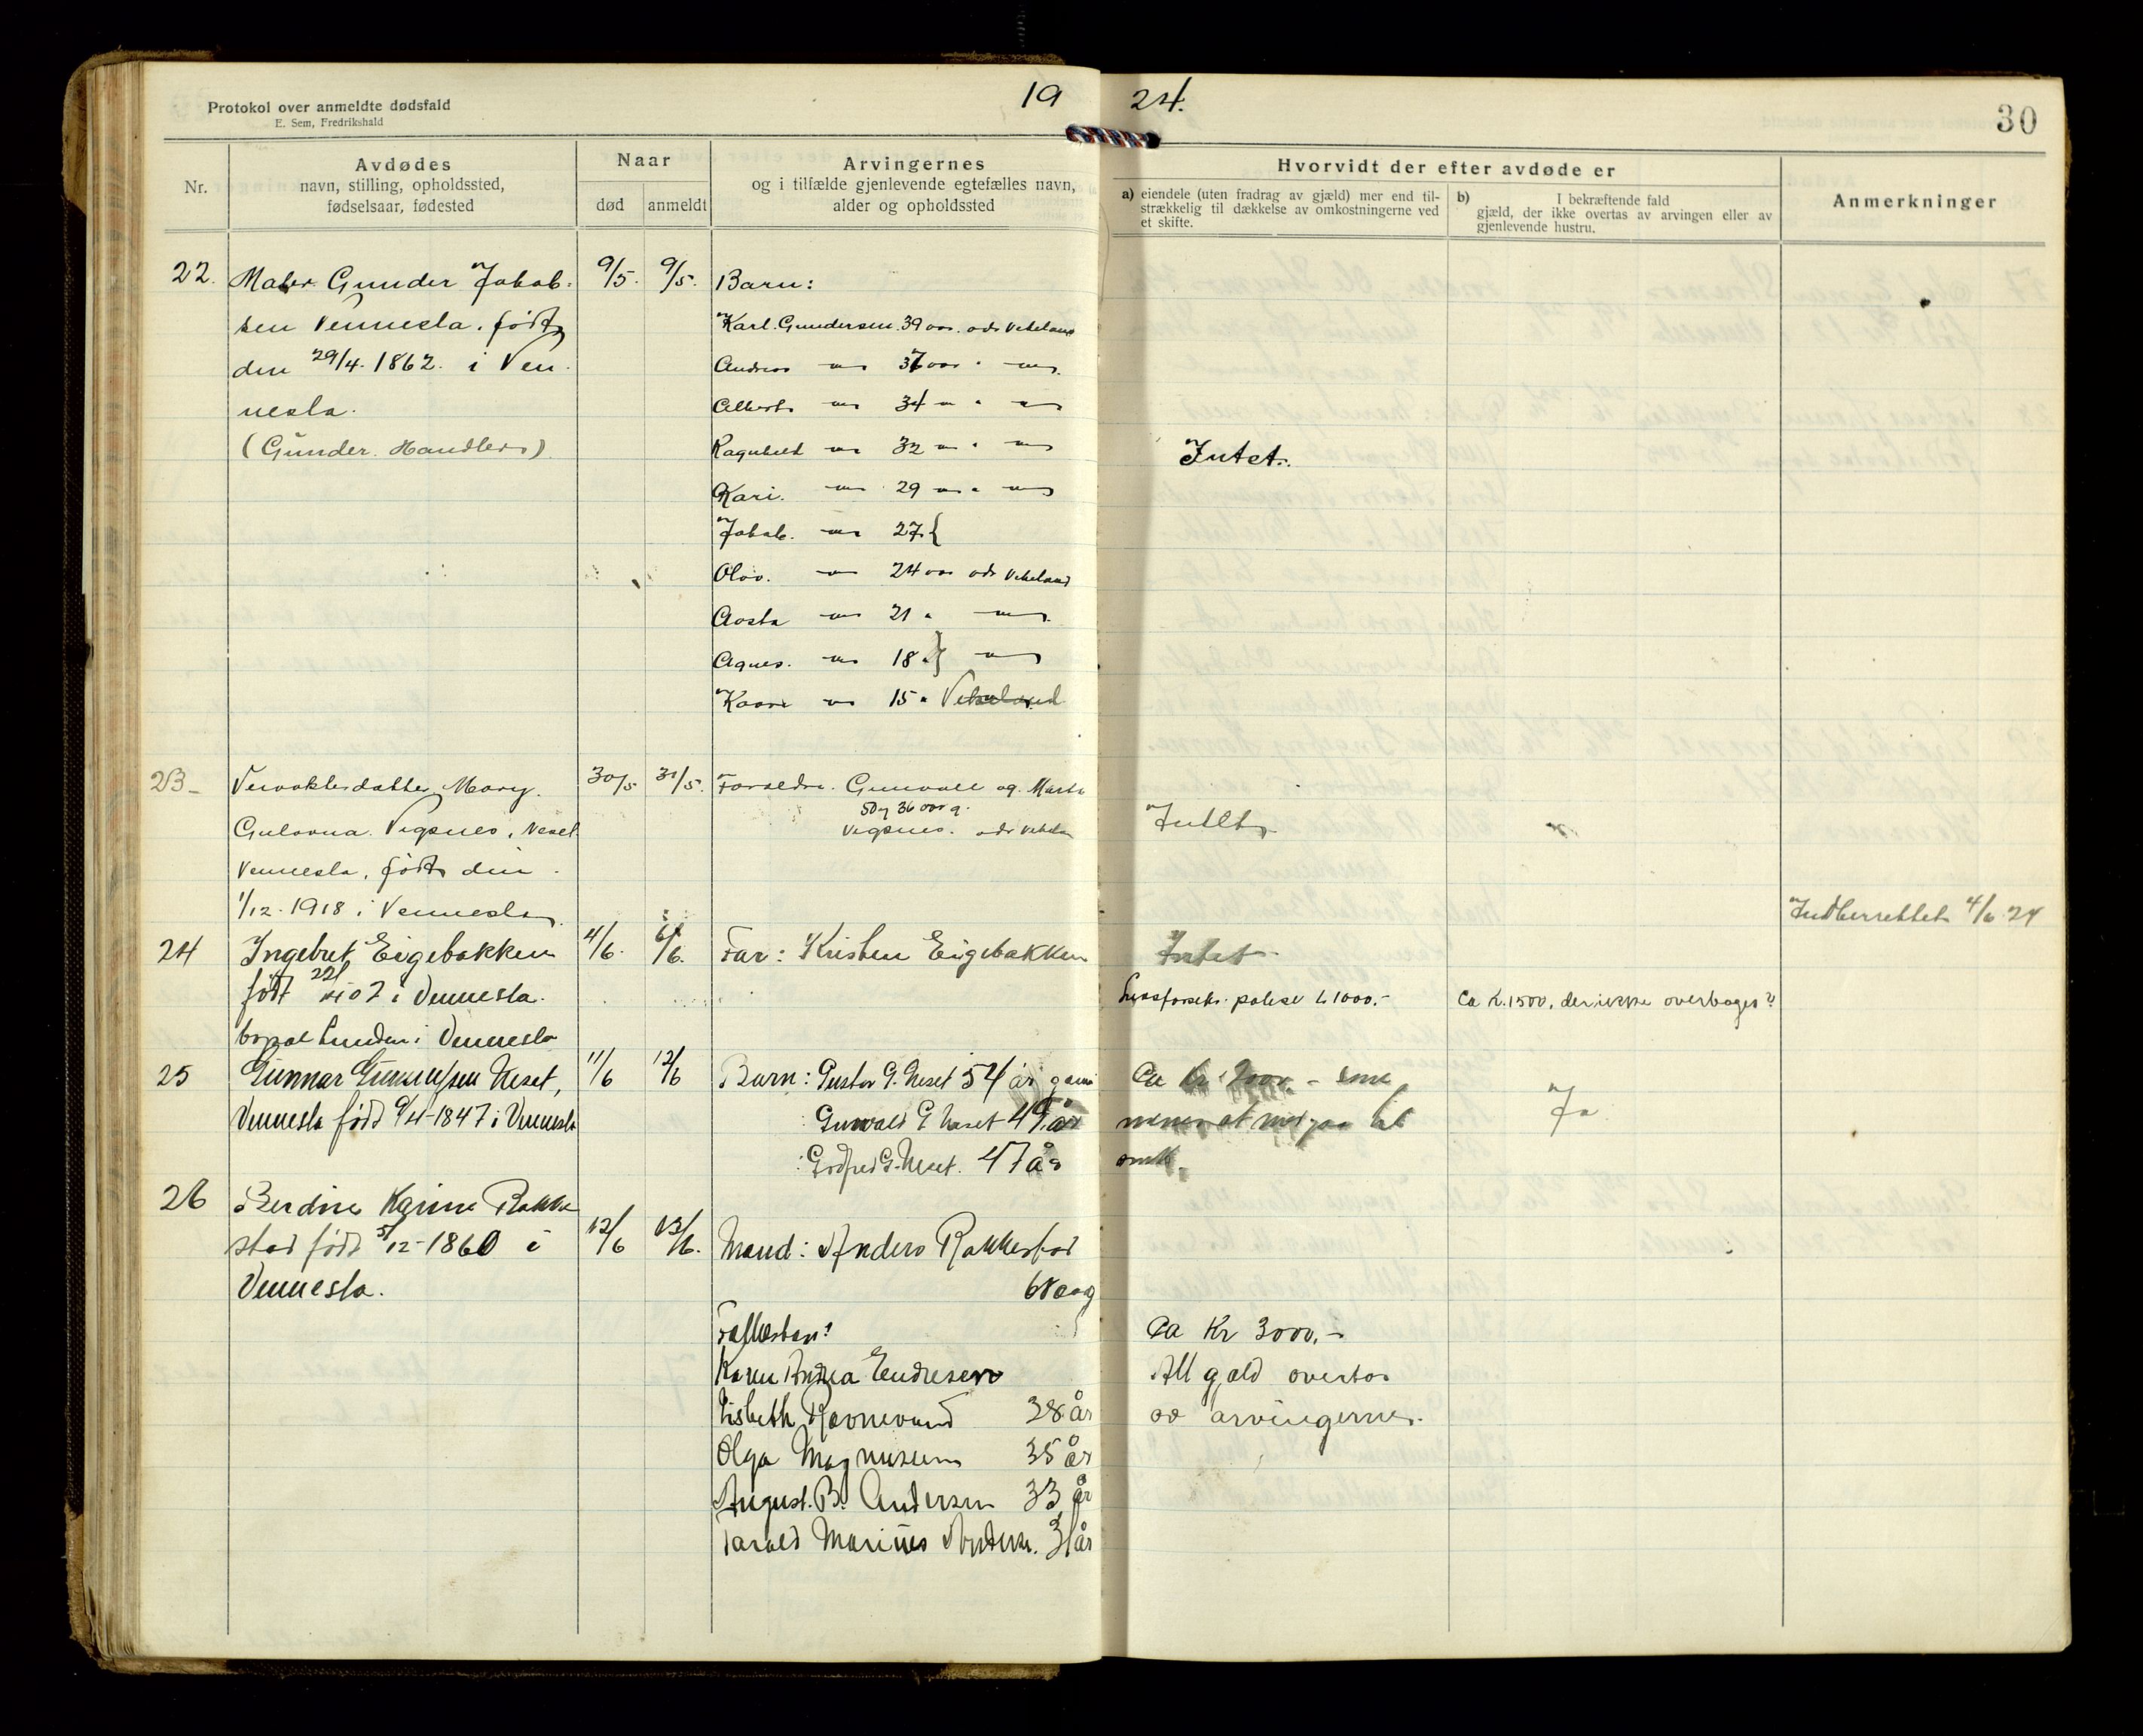 Protokol over anmeldte dødsfald
E. Sem, Fredrikshald
19 24.
30
Nr.
Avdødes
navn, stilling, opholdssted,
fødselsaar, fødested
Naar
død
anmeldt
Arvingernes
og i tilfælde gjenlevende egtefælles navn,
alder og opholdssted
Hvorvidt der efter avdøde er
a) eiendele (uten fradrag av gjæld) mer end til-
strækkelig til dækkelse av omkostningerne ved
et skifte.
b) I bekræftende fald
gjæld, der ikke overtas av arvingen eller av
gjenlevende hustru.
Anmerkninger
22. Maler Gunder Jakob-
sen Vennesla. født
den 29/4. 1862. i Ven
nesla.
(Gunder Handlers)
9/5. 9/5.
Barn:
Karl. Gundersen. 39 aar. adr Vikeland
Andreas 37 aar
Albert 34
Ragnhild 32
Kari. 29
Jakob. 27
Olav. 24 aar adr Vikeland
Aasta 21
Agnes. 18
Kaare 15 Vikeland
Intet.
23 datter Mary.
Vigsnes, Neset
Vennesla, født den
1/12-1918 i Vennesla
30/5 31/5.
Foreldre. Gunvald og Marta
50 og 36 aar g.
Vigsnes. adr
Intet
Indberettet 4/6 24
24 Ingebret Eigebakken
født 22/ 07 i Vennesla.
bopæl Lunden i Vennesla
4/6. 6/6.
Far: Kristen Eigebakken
Intet
Livsforsikr. polise k. 1000.-
Ca k. 1500, der ikke overtages?
25 Gunnar Neset,
Vennesla født 9/4-1847 i Vennesla
11/6 12/6
Barn: Gustav G. Neset 54 år gamm
Gunvald G Neset 49 år
Godfred G. Neset. 47 år
Ca kr 2000. - som
menes at medgaa til
omk.
Ja
26 Berdine Karine Rakke
stad født 5/12-1860 i
Vennesla.
12/6 13/6.
Mand: Anders Rakkestad
Karen Andrea Endresen
Lisbeth Ravnevand 38 år
Olga Magnussen 35 år
August. B. Andersen 33 år
Tarald Marius Anders. 31 år
Ca Kr 3000.-
All gjæld overtas
av arvingerne.